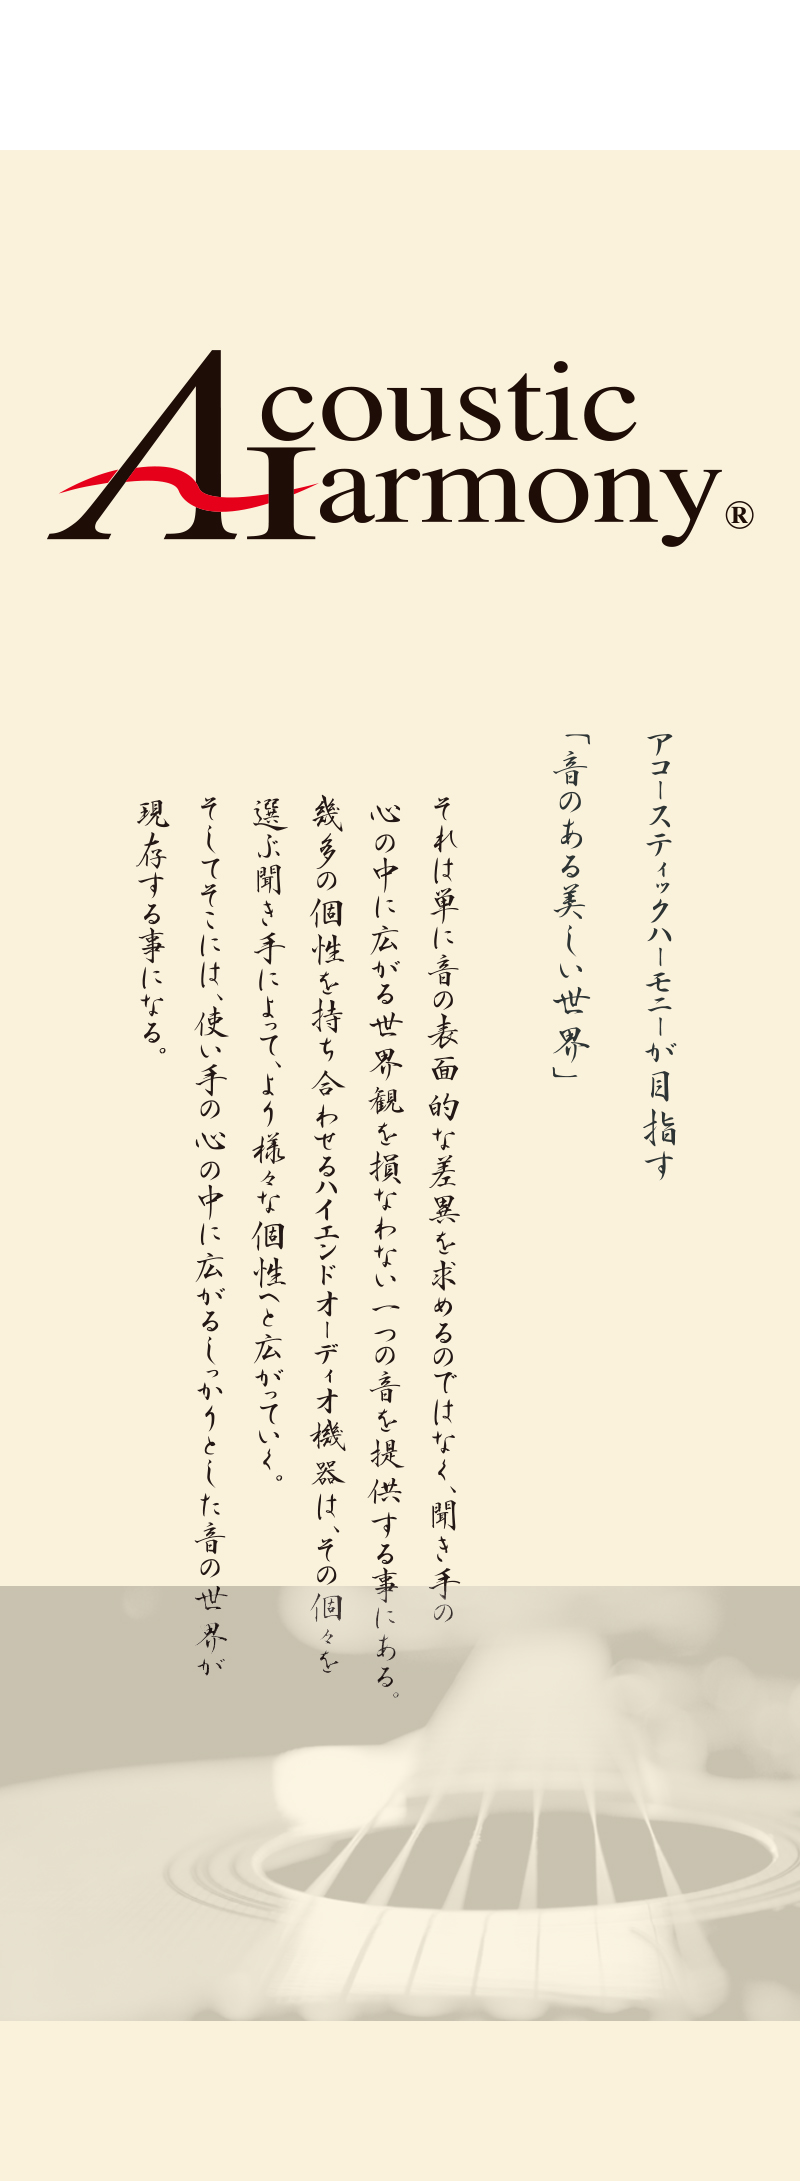 Acoustic
Harmony®
アコースティックハーモニーが目指す
「音のある美しい世界」
それは単に音の表面的な差異を求めるのではなく、聞き手の
心の中に広がる世界観を損なわない一つの音を提供する事にある。
幾多の個性を持ち合わせるハイエンドオーディオ機器は、その個々を
選ぶ聞き手によって、より様々な個性へと広がっていく。
そしてそこには、使い手の心の中に広がるしっかりとした音の世界が
現存する事になる。